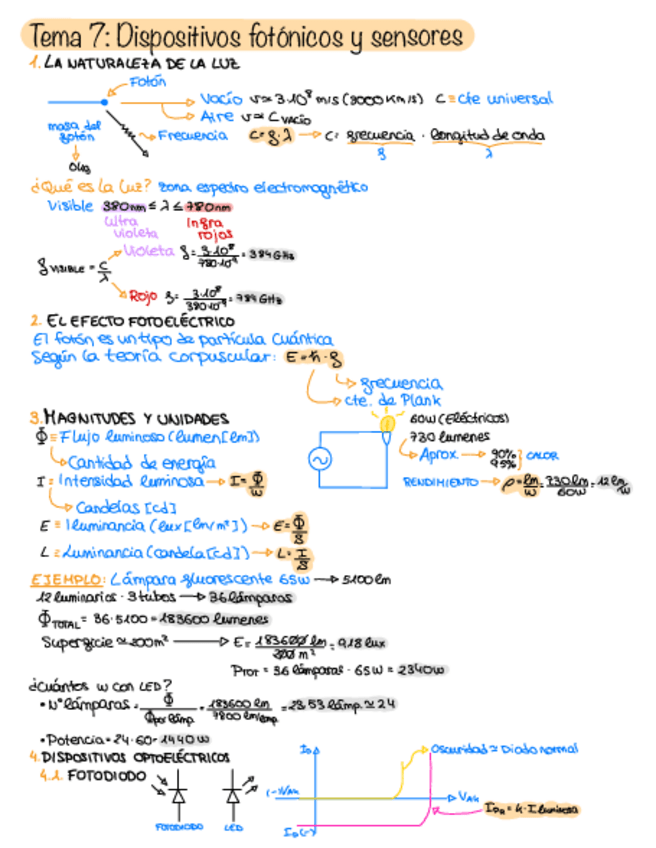 Tema 7: Dispositivos fotónicos y sensores
1. LA NATURALEZA DE LA LUZ
Fotón
Vacío v≃3·10⁸ m/s (3000 Km/s) C≡cte universal
Aire v≃C vacío
masa del fotón
0kg
Frecuencia C=f·λ → C= frecuencia · longitud de onda
f λ
¿Qué es la luz? zona espectro electromagnético
Visible 380nm ≤ λ ≤ 780nm
Ultra violeta Infra rojos
f VISIBLE = C/λ
Violeta f= 3·10⁸/780·10⁻⁹ = 384GHz
Rojo f= 3·10⁸/380·10⁻⁹ = 789GHz
2. EL EFECTO FOTOELÉCTRICO
El fotón es un tipo de partícula cuántica
Según la teoría corpuscular: E=h·f
frecuencia
cte. de Plank
3. MAGNITUDES Y UNIDADES
Φ≡Flujo luminoso (lumen[lm])
Cantidad de energía
I≡Intensidad luminosa → I=Φ/w
Candelas [cd]
E≡Iluminancia (lux[lm/m²]) → E=Φ/S
L≡Luminancia (candela[cd]) → L=I/S
60W (Eléctricos)
730 lumenes
Aprox → 90% 95% } CALOR
RENDIMIENTO → ρ=lm/W=730lm/60W=12lm/W
EJEMPLO: Lámpara fluorescente 65w → 5100lm
12 luminarios · 3 tubos → 36 lámparas
Φ TOTAL = 36·5100=183600 lumenes
Superficie ≃200m² → E= 183600 lm/200 m² = 918 lux
PTOT = 36 lámparas · 65W = 2340W
¿Cuántos w con LED?
• Nº lámparas = Φ/Φpor lámp. = 183600 lm/7800 lm/lamp = 23.53 lámp. ≃ 24
• Potencia=24·60=1440W
4. DISPOSITIVOS OPTOELÉCTRICOS
4.1. FOTODIODO
FOTODIODO LED
Oscuridad ≃ Diodo normal
(-)VAK
VAK